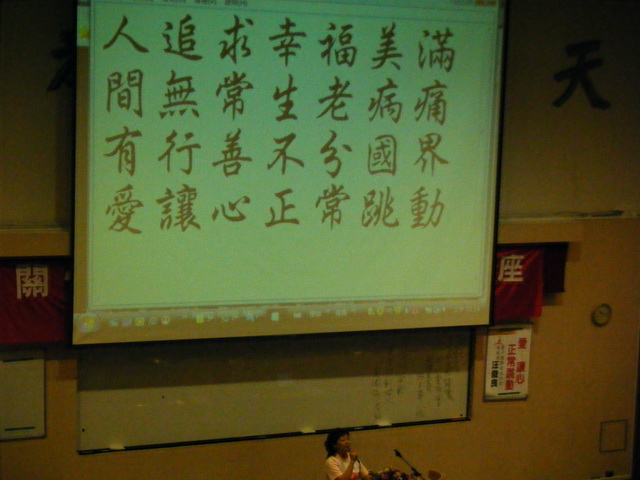 人追求幸福美滿
間無常生老病痛
有行善不分國界
愛讓心正常跳動
天
關
座
愛 讓心
正常跳動